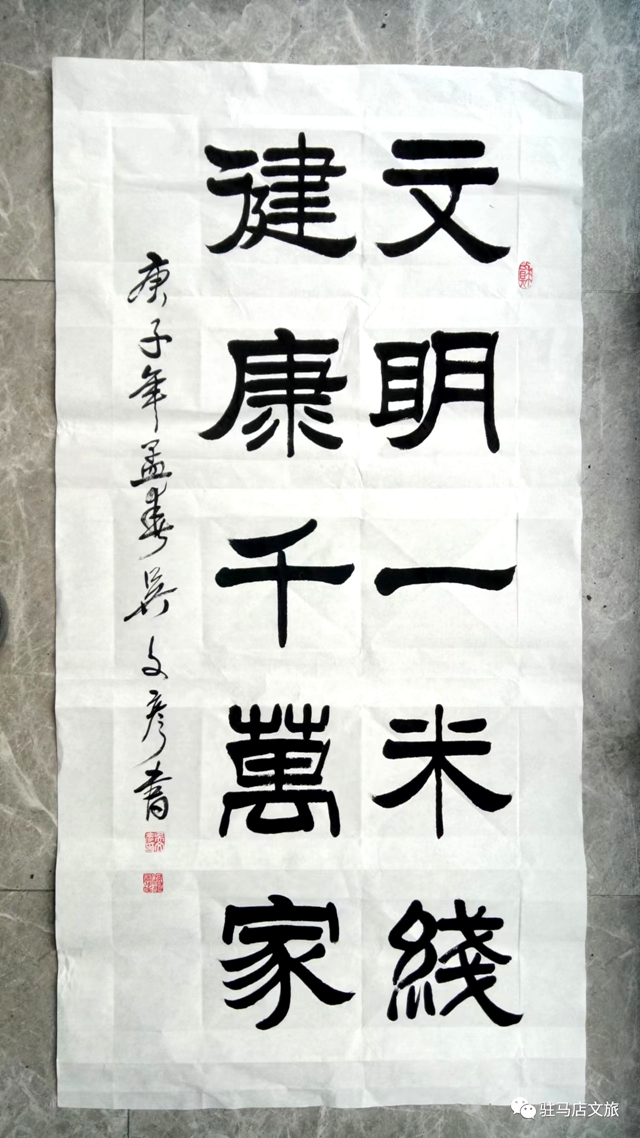 文明一米綫
健康千萬家
庚子年孟春吴文彦書
驻马店文旅